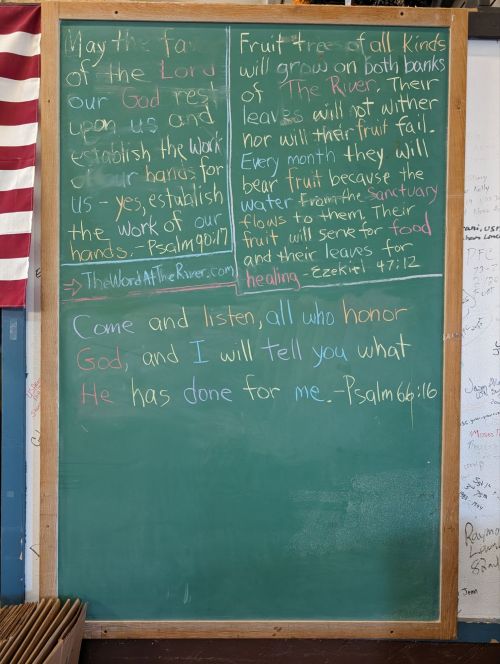 May the fa
of the Lord
our God rest
upon us and
establish the work
of our hands for
us - yes, establish
the work of our
hands. - Psalm 90:17
Fruit trees of all Kinds
will grow on both banks
of The River. Their
leaves will not wither
nor will their fruit fail.
Every month they will
bear fruit because the
water from the Sanctuary
flows to them. Their
fruit will serve for food
and their leaves for
healing - Ezekiel 47:12
⇒ TheWordAtTheRiver.com
Come and listen, all who honor
God, and I will tell you what
He has done for me. - Psalm 66:16
Raymo
82nd
Jenn